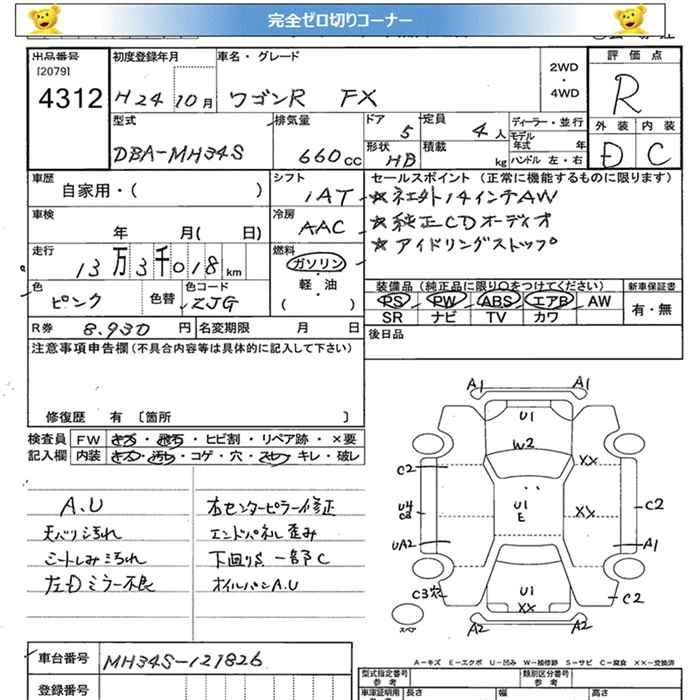 完全ゼロ切りコーナー
出品番号 [2079] 4312
初度登録年月 H24 10月
車名・グレード ワゴンR FX
2WD・4WD
評価点 R
外装 D 内装 C
型式 DBA-MH34S
排気量 660cc
ドア 5
形状 HB
定員 4人
積載 kg
ディーラー・並行
モデル年式 年
ハンドル 左・右
車歴 自家用・( )
シフト IAT
セールスポイント (正常に機能するものに限ります)
☆社外14インチAW
☆純正CDオーディオ
☆アイドリングストップ
車検 年 月( 日)
冷房 AAC
走行 13万3千018km
燃料 ガソリン・軽・油 ( )
色 ピンク
色替
色コード ZJG
装備品 (純正品に限り○をつけてください)
新車保証書 有・無
PS PW ABS エアB AW
SR ナビ TV カワ
R券 8.930円
名変期限 月 日
後日品
注意事項申告欄 (不具合内容等は具体的に記入して下さい)
修復歴 有 〔箇所 〕
検査員記入欄
FW キズ・飛石・ヒビ割・リペア跡・×要
内装 キズ・汚れ・コゲ・穴・スレ・キレ・破レ
A.U
天バリ汚れ
シートしみ汚れ
左Dミラー不良
右センターピラー修正
エンドパネル歪み
下回りS 一部C
オイルパンA.U
A1 A1
U1
W2
C2 XX
U4 C3 U1 E XX C2
UA2 A1
C3穴 U1 XX C2
スペア A2 A2
A-キズ E-エクボ U-凹み W-補修跡 S-サビ C-腐食 XX-交換済
車台番号 MH34S-121826
登録番号
型式指定番号 参考
類別区分番号 参考
車庫証明用 長さ 幅 高さ